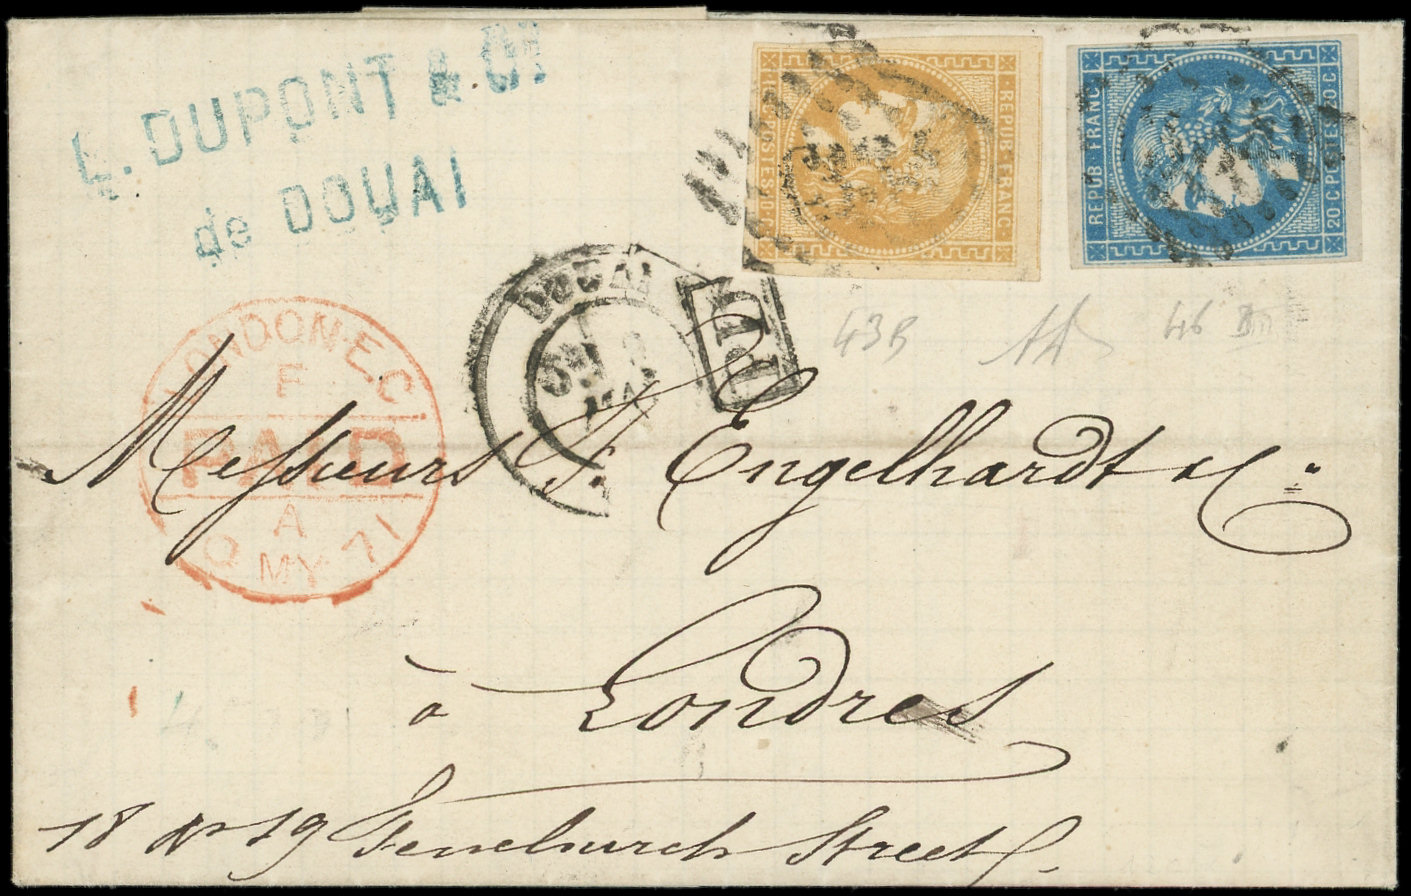 L. DUPONT & Cie
de DOUAI
REPUB · FRANC
POSTES
REPUB · FRANC
20 C POSTES 20 C
DOUAI
MAI
PD
LONDON·E.C
F
PAID
A
10 MY 71
43B
46 B
Messieurs F. Engelhardt & Co.
à Londres
18 & 19 Fenchurch Street